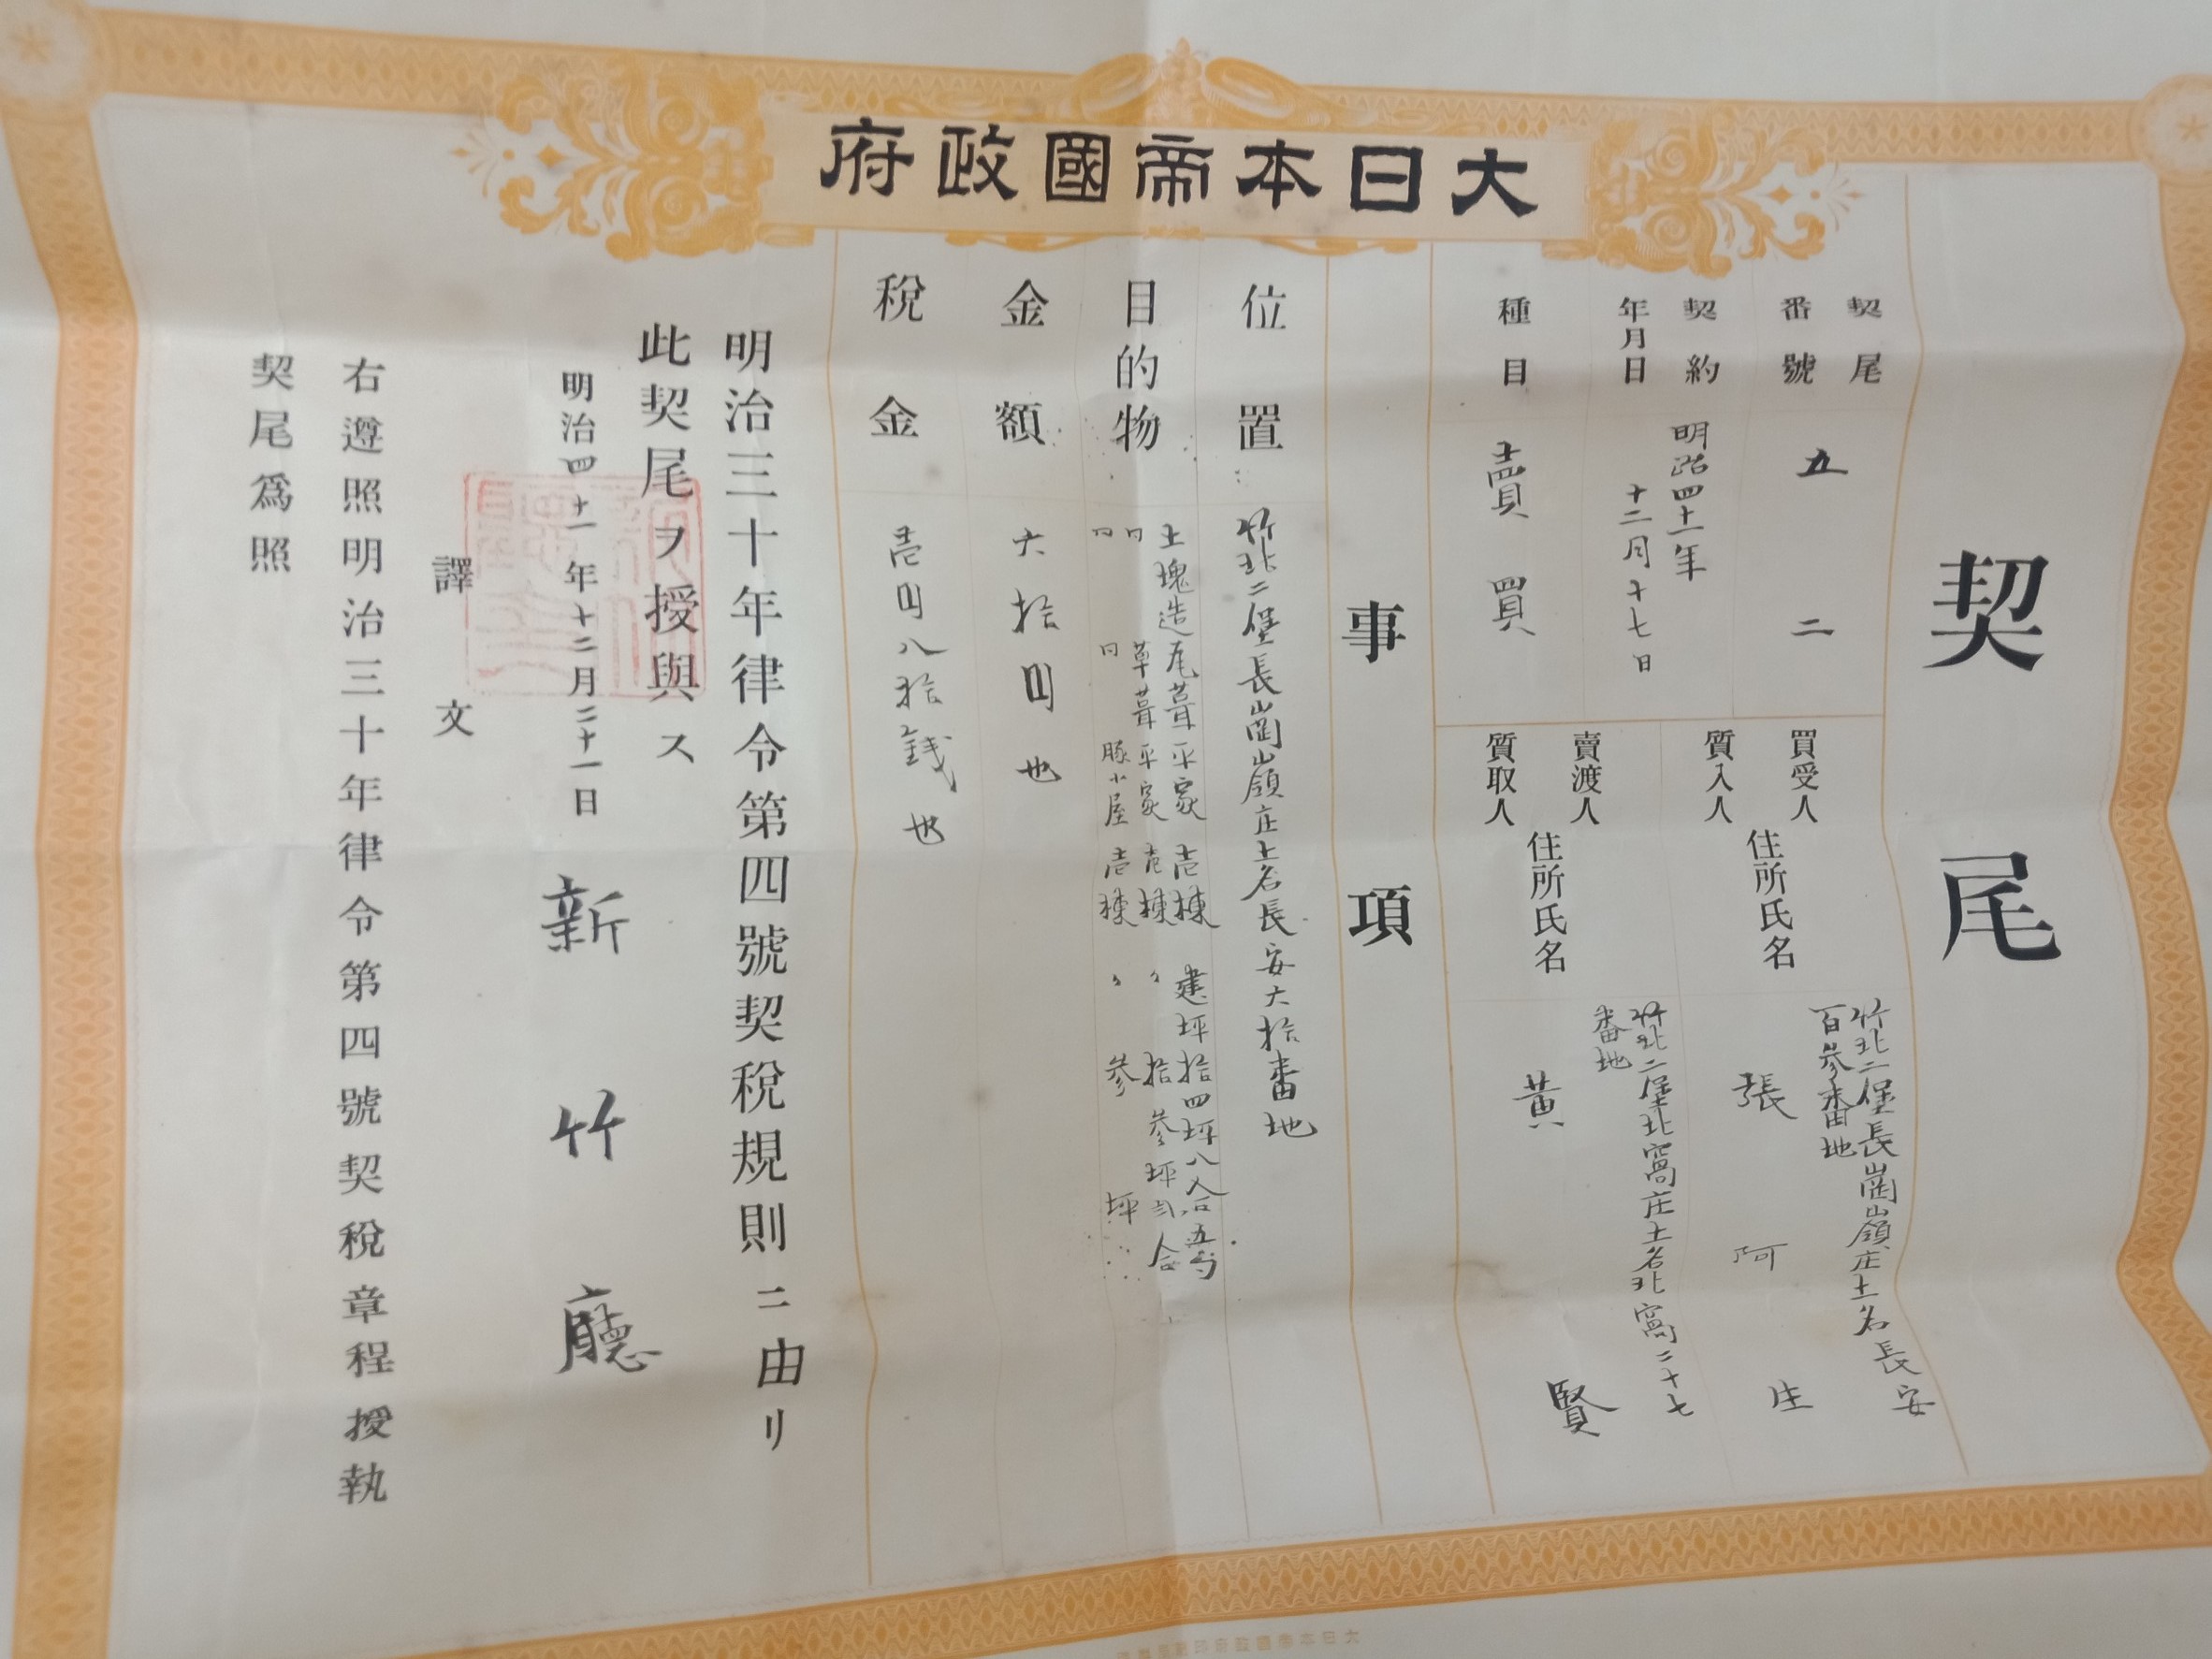 大日本帝國政府
契尾
契尾
番號
五二
契約
年月日
明治四十一年
十二月十七日
種目
賣買
買受人
質入人
住所氏名
竹北二堡長崗嶺庄土名長安
百參番地
張阿生
賣渡人
質取人
住所氏名
竹北二堡北窩庄土名北窩二十七
番地
黃賢
事項
位置
竹北二堡長崗嶺庄土名長安六拾番地
目的物
土塊造瓦葺平家壱棟 建坪拾四坪八合五勺
同 草葺平家壱棟 〃 拾參坪弍合
同 同 豚小屋壱棟 〃 參坪
金額
六拾円也
稅金
壱円八拾銭也
明治三十年律令第四號契稅規則ニ由リ
此契尾ヲ授與ス
明治四十一年十二月二十一日
新竹廳
譯文
右遵照明治三十年律令第四號契稅章程授執
契尾爲照